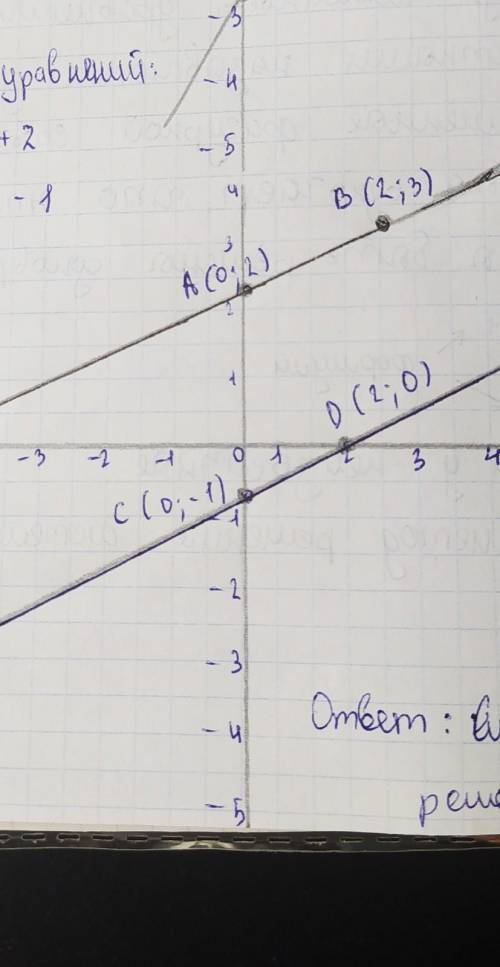 -3
уравнений:
-4
+ 2
-5
- 1
4
B (2; 3)
3
A (0; 2)
2
1
D (2; 0)
-3 -2 -1 0 1 2 3 4
C (0; -1)
-1
-2
-3
Ответ:
-4
-5